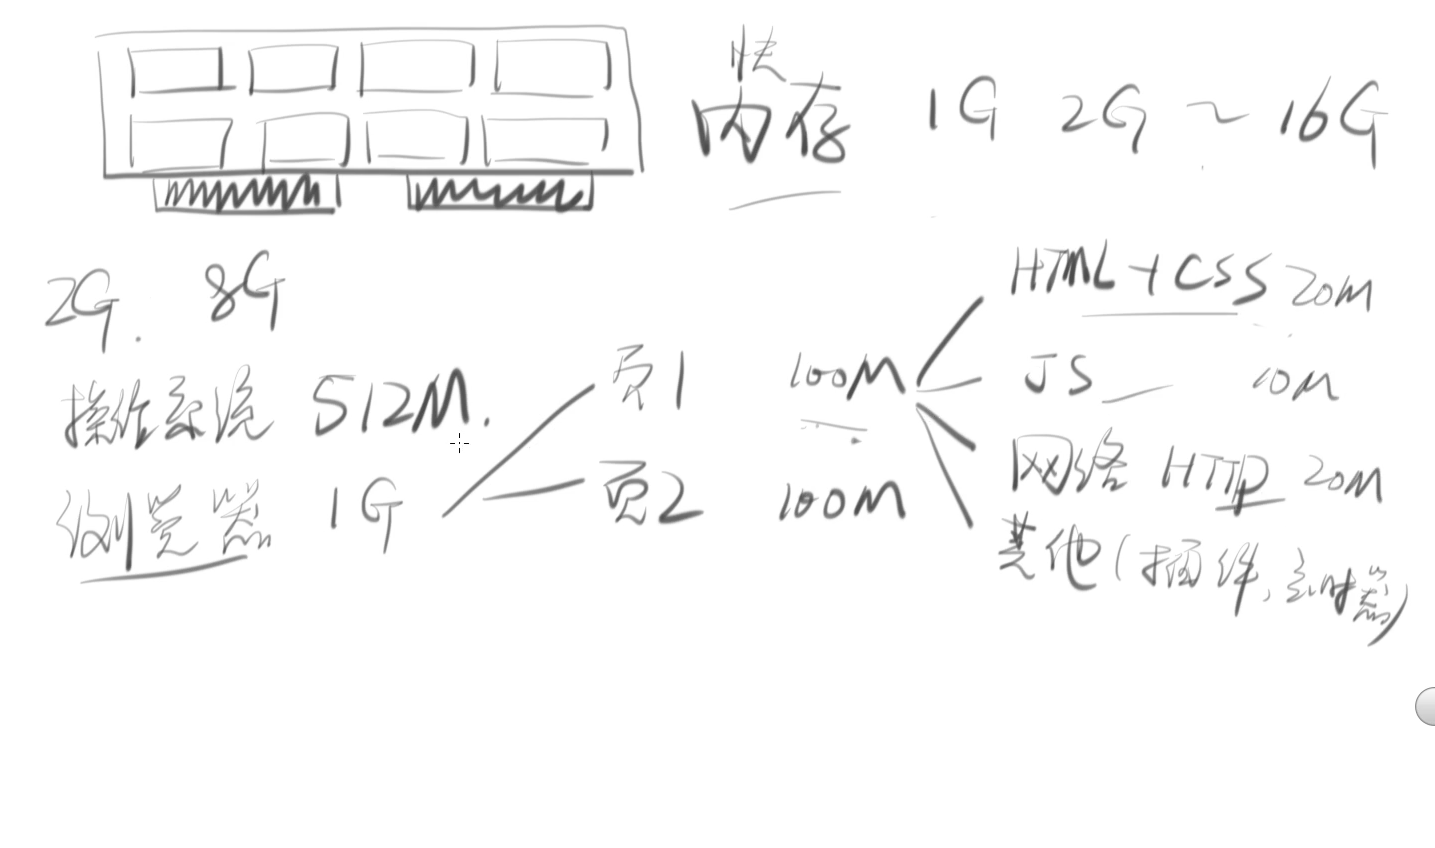 快
内存 1G 2G ~ 16G
2G. 8G
操作系统 512M.
浏览器 1G
页1 100M
页2 100M
HTML+CSS 20M
JS 10M
网络 HTTP 20M
其他(插件,定时器)